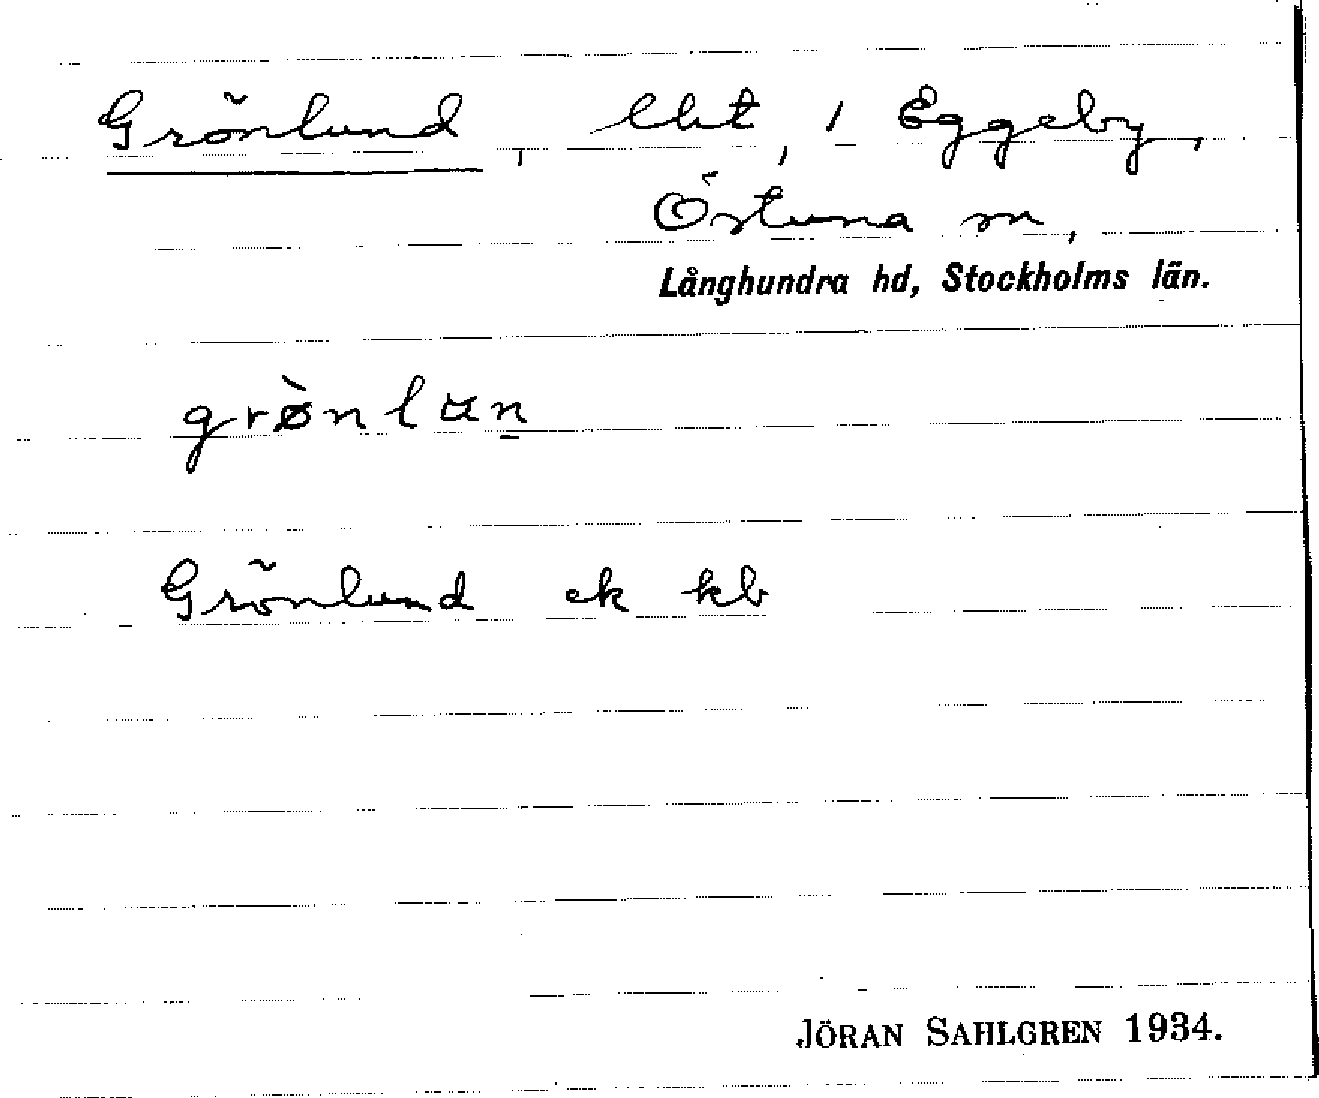 Grönlund, lht, i Eggeby,
Östuna sn,
Långhundra hd, Stockholms län.
grø̀nlɯn̲
Grönlund ek kb
JÖRAN SAHLGREN 1934.